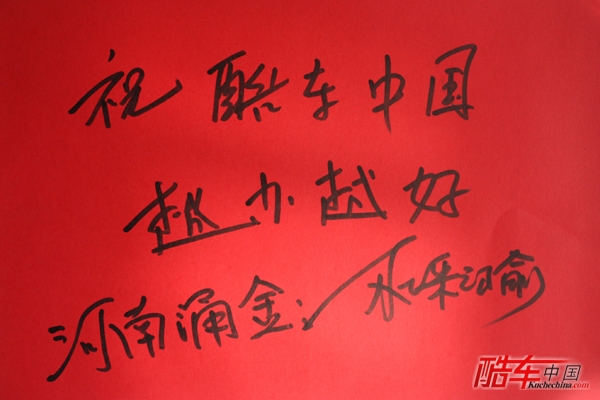 祝酷车中国
越办越好
河南涌金：
酷车中国
Kochechina.com